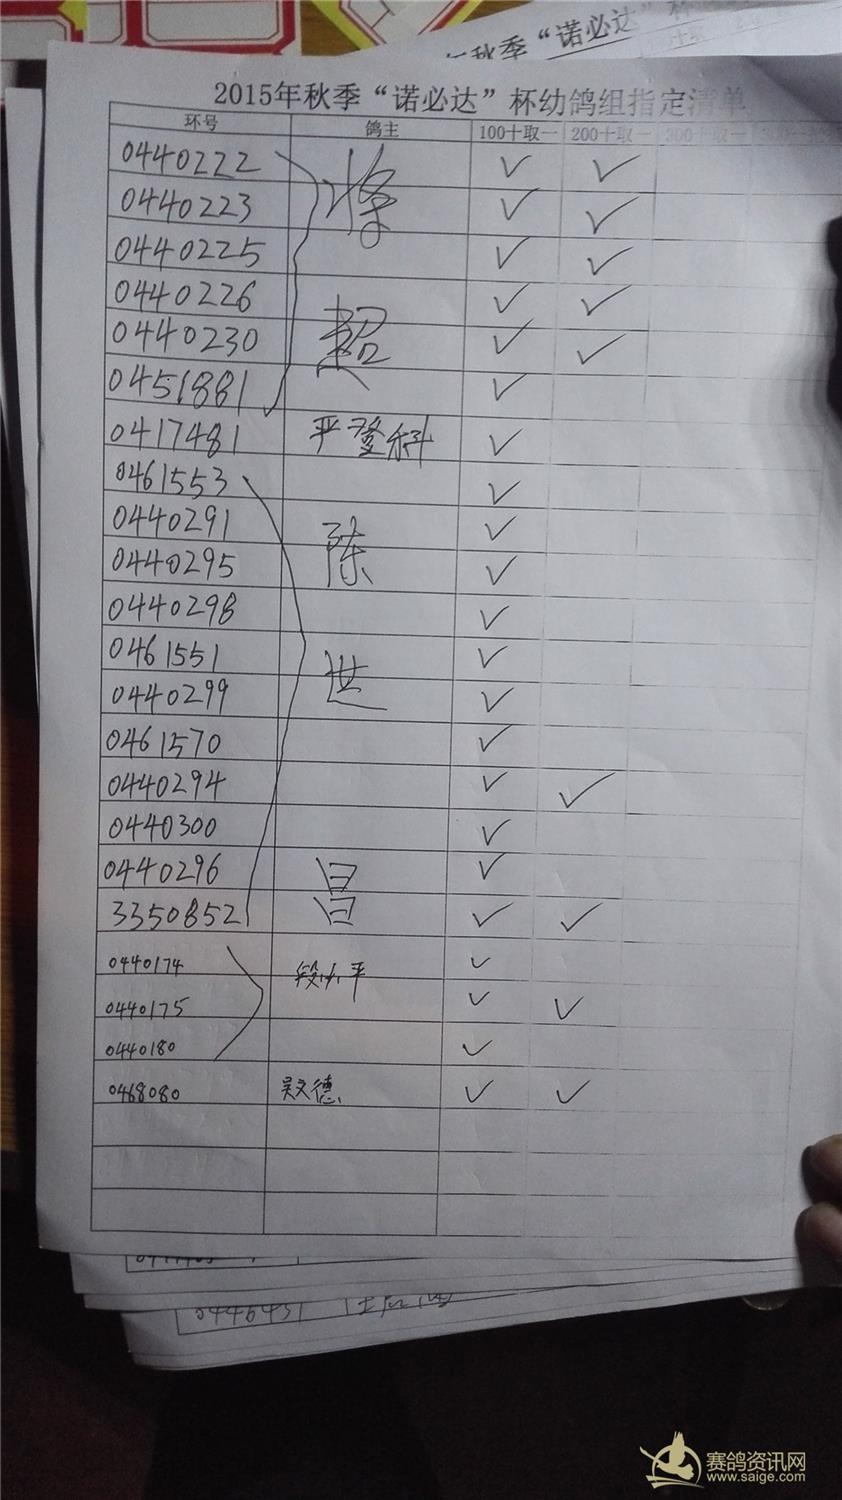 年秋季“诺必达”杯
2015年秋季“诺必达”杯幼鸽组指定清单
环号 鸽主 100十取一 200十取一 300十取一
0440222 ✓ ✓
0440223 ✓ ✓
0440225 ✓ ✓
0440226 ✓ ✓
0440230 超 ✓ ✓
0451881 ✓
0417481 严登科 ✓
0461553 ✓
0440291 陈 ✓
0440295 ✓
0440298 ✓
0461551 世 ✓
0440299 ✓
0461570 ✓
0440294 ✓ ✓
0440300 ✓
0440296 昌 ✓
3350852 ✓ ✓
0440174 段小平 ✓
0440175 ✓ ✓
0440180 ✓
0468080 吴文德 ✓ ✓
赛鸽资讯网
www.saige.com